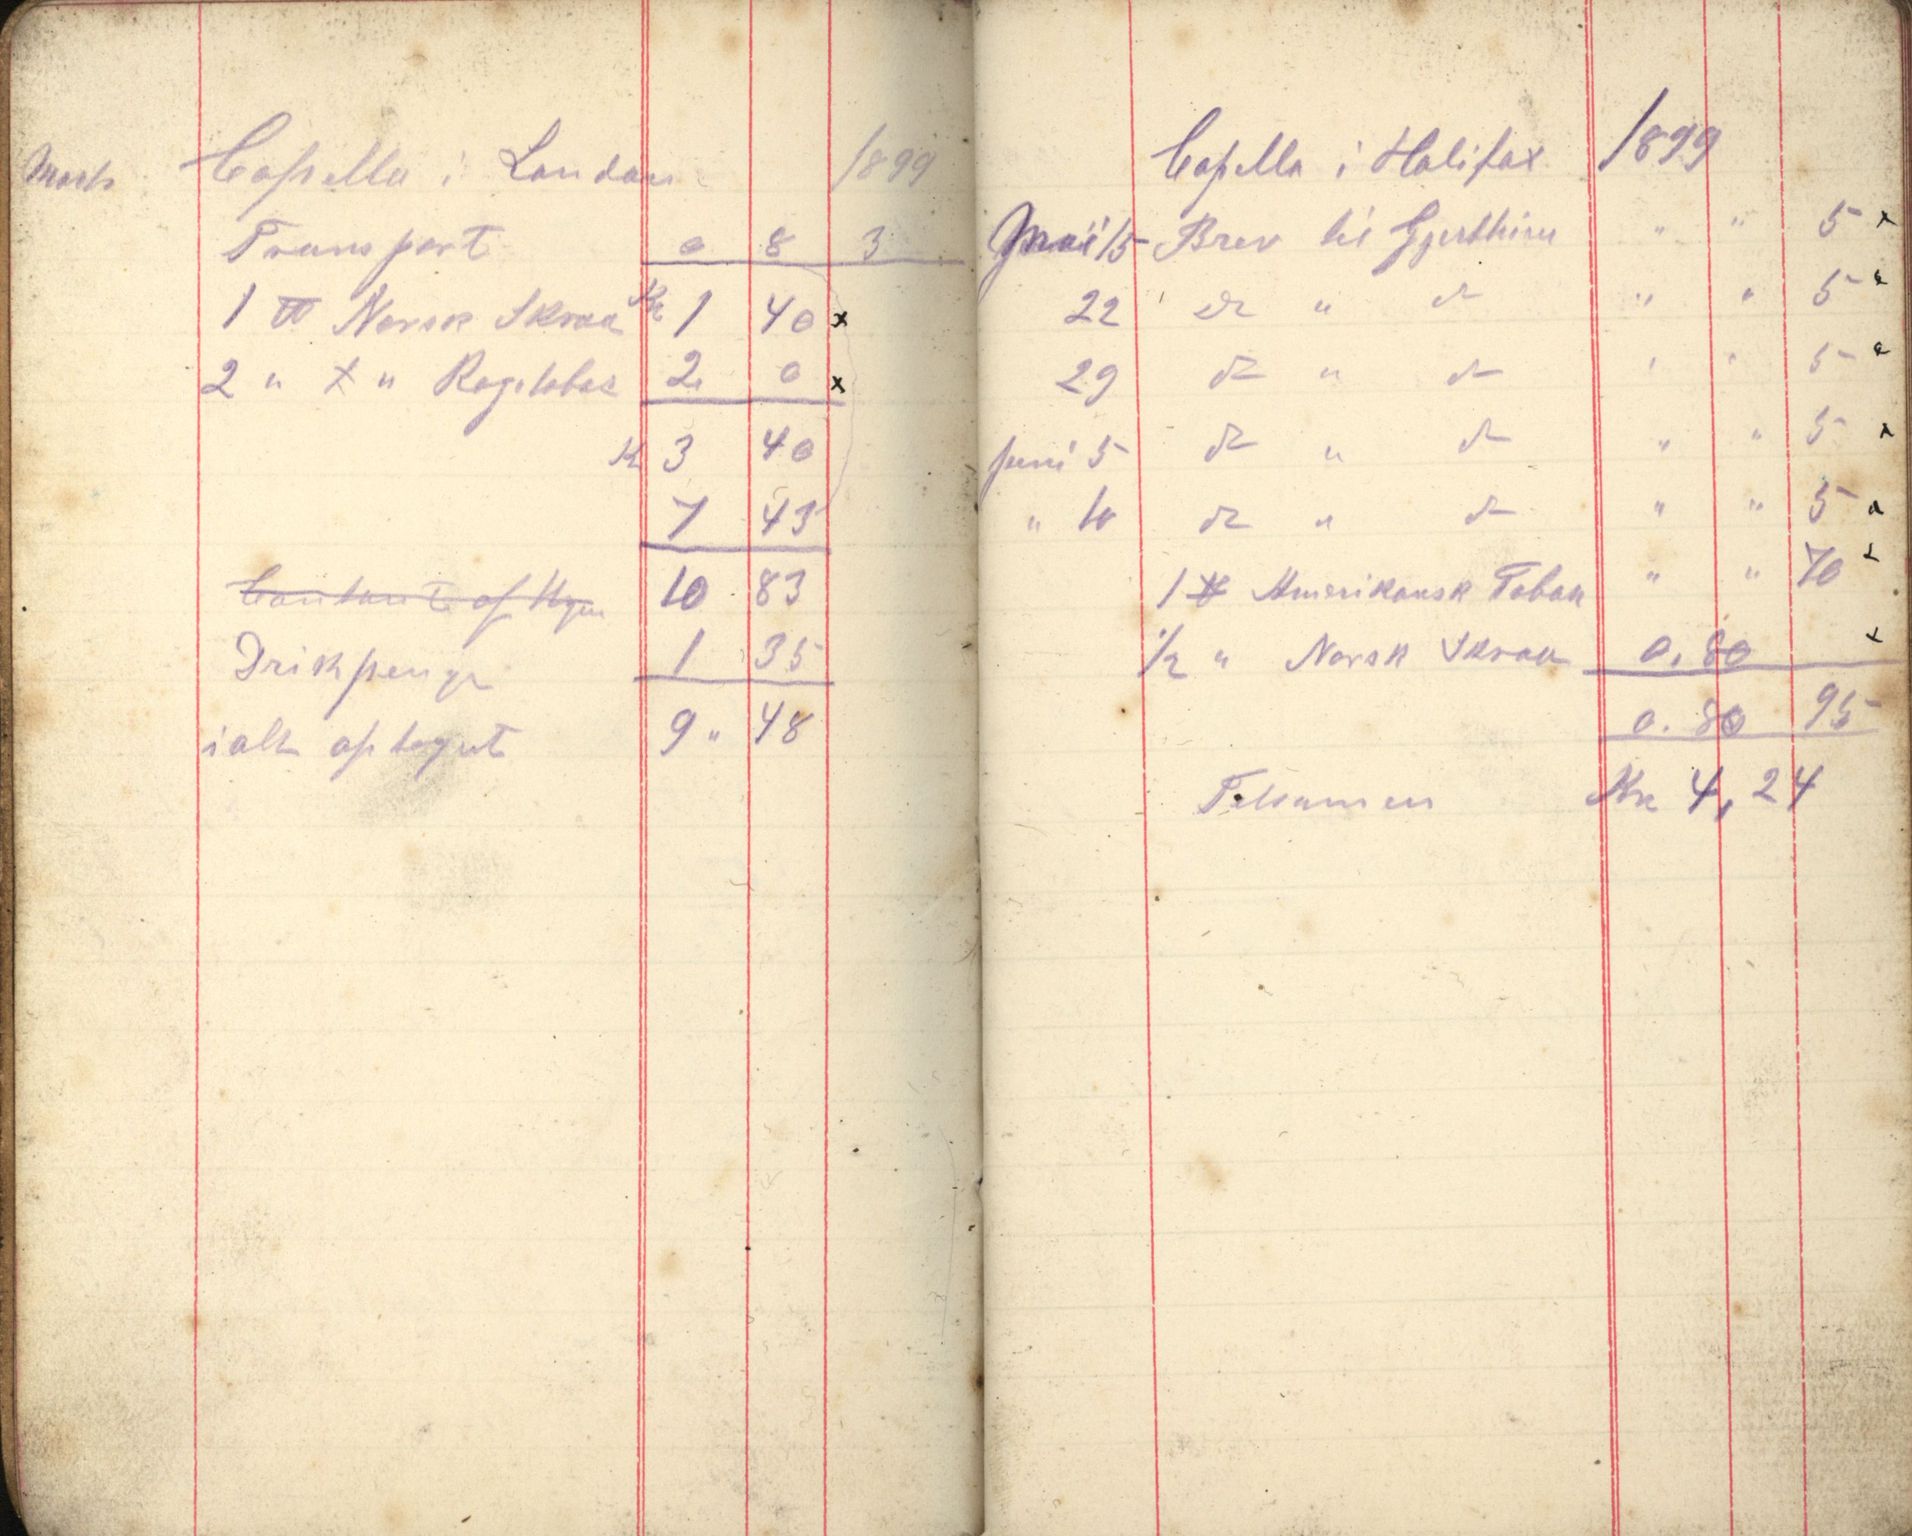 Marts Capella i London 1899
Transport 0 8 3
1 ℔ Norsk Skraa Kr 1 40 x
2 " ℔ " Røgetobak 2 0 x
Kr 3 40
7 43
10 83
Drikpenge 1 35
ialt optaget 9 " 48
Capella i Halifax 1899
Mai 15 Brev til Gjerthine " " 5 x
22 do " do " " 5 x
29 do " do " " 5 x
juni 5 do " do " " 5 x
" 10 do " do " " 5 x
1 ℔ Amerikansk Tobak " " 70 x
1/2 " Norsk Skraa 0.80 x
0.80 95
Tilsamen Kr 4,24